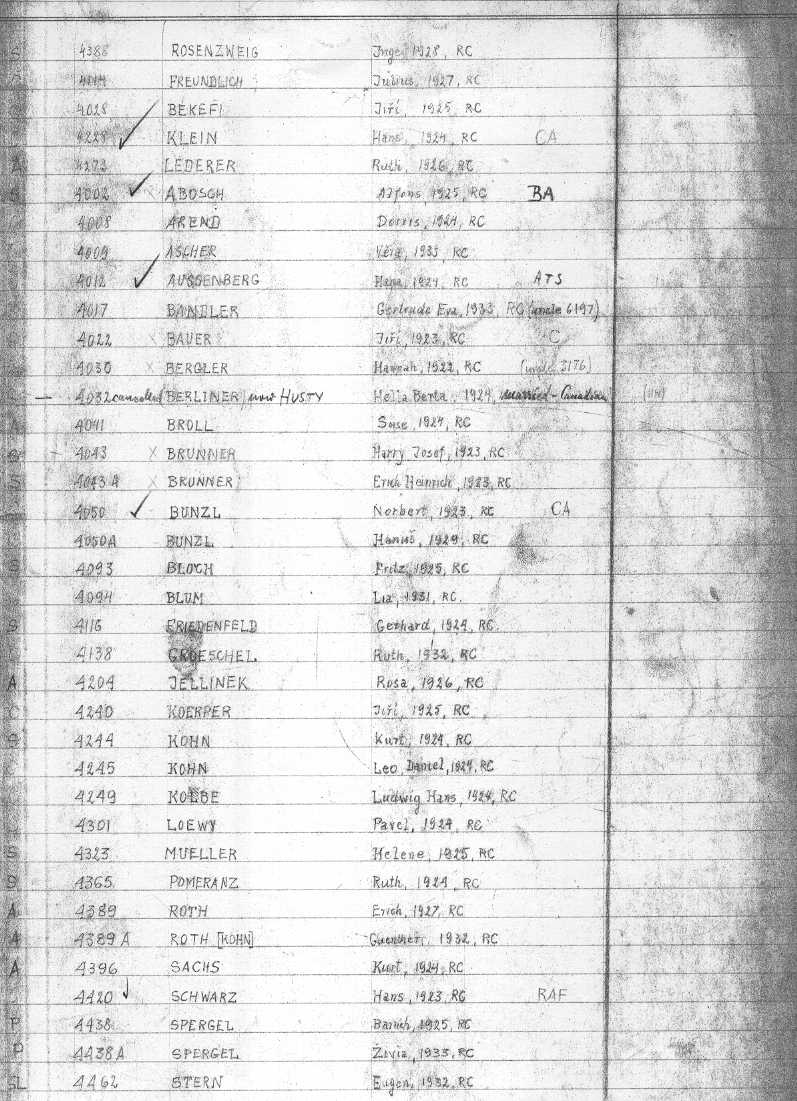 4388 ROSENZWEIG Inge, 1928, RC
4014 FREUNDLICH Julius, 1927, RC
4028 BEKEFI Jiří, 1925, RC
4228 KLEIN Hans, 1924, RC CA
A 4273 LEDERER Ruth, 1926, RC
S 4002 ABOSCH Alfons, 1925, RC BA
4008 AREND Dorris, 1924, RC
4009 ASCHER Vera, 1933, RC
4012 AUSSENBERG Hana, 1924, RC ATS
4017 BANDLER Gertrude Eva, 1933, RC (uncle 6197)
4022 X BAUER Jiří, 1923, RC C
4030 X BERGLER Hannah, 1922, RC
— 4032 cancelled (BERLINER) now HUSTY Hella Berta, 1924, married - Canadian
A 4041 BROLL Suse, 1924, RC
S 4043 X BRUNNER Harry Josef, 1923, RC
S 4043 A X BRUNNER Erich Heinrich, 1923, RC
4050 BUNZL Norbert, 1923, RC CA
4050A BUNZL Hanuš, 1929, RC
S 4093 BLOCH Fritz, 1925, RC
4094 BLUM Lia, 1931, RC.
S 4116 FRIEDENFELD Gerhard, 1924, RC.
4138 GROESCHEL Ruth, 1932, RC
A 4204 JELLINEK Rosa, 1926, RC
C 4240 KOERPER Jiří, 1925, RC
S 4244 KOHN Kurt, 1924, RC
4245 KOHN Leo, Daniel, 1924, RC
4249 KOLBE Ludwig Hans, 1924, RC
4301 LOEWY Pavel, 1924, RC
S 4323 MUELLER Helene, 1925, RC
S 4365 POMERANZ Ruth, 1924, RC
A 4389 ROTH Erich, 1927, RC
A 4389 A ROTH [KOHN] Guenther, 1932, RC
A 4396 SACHS Kurt, 1924, RC
4420 SCHWARZ Hans, 1923, RC RAF
P 4438 SPERGEL Baruch, 1925, RC
P 4438 A SPERGEL Živia, 1933, RC
SL 4462 STERN Eugen, 1932, RC